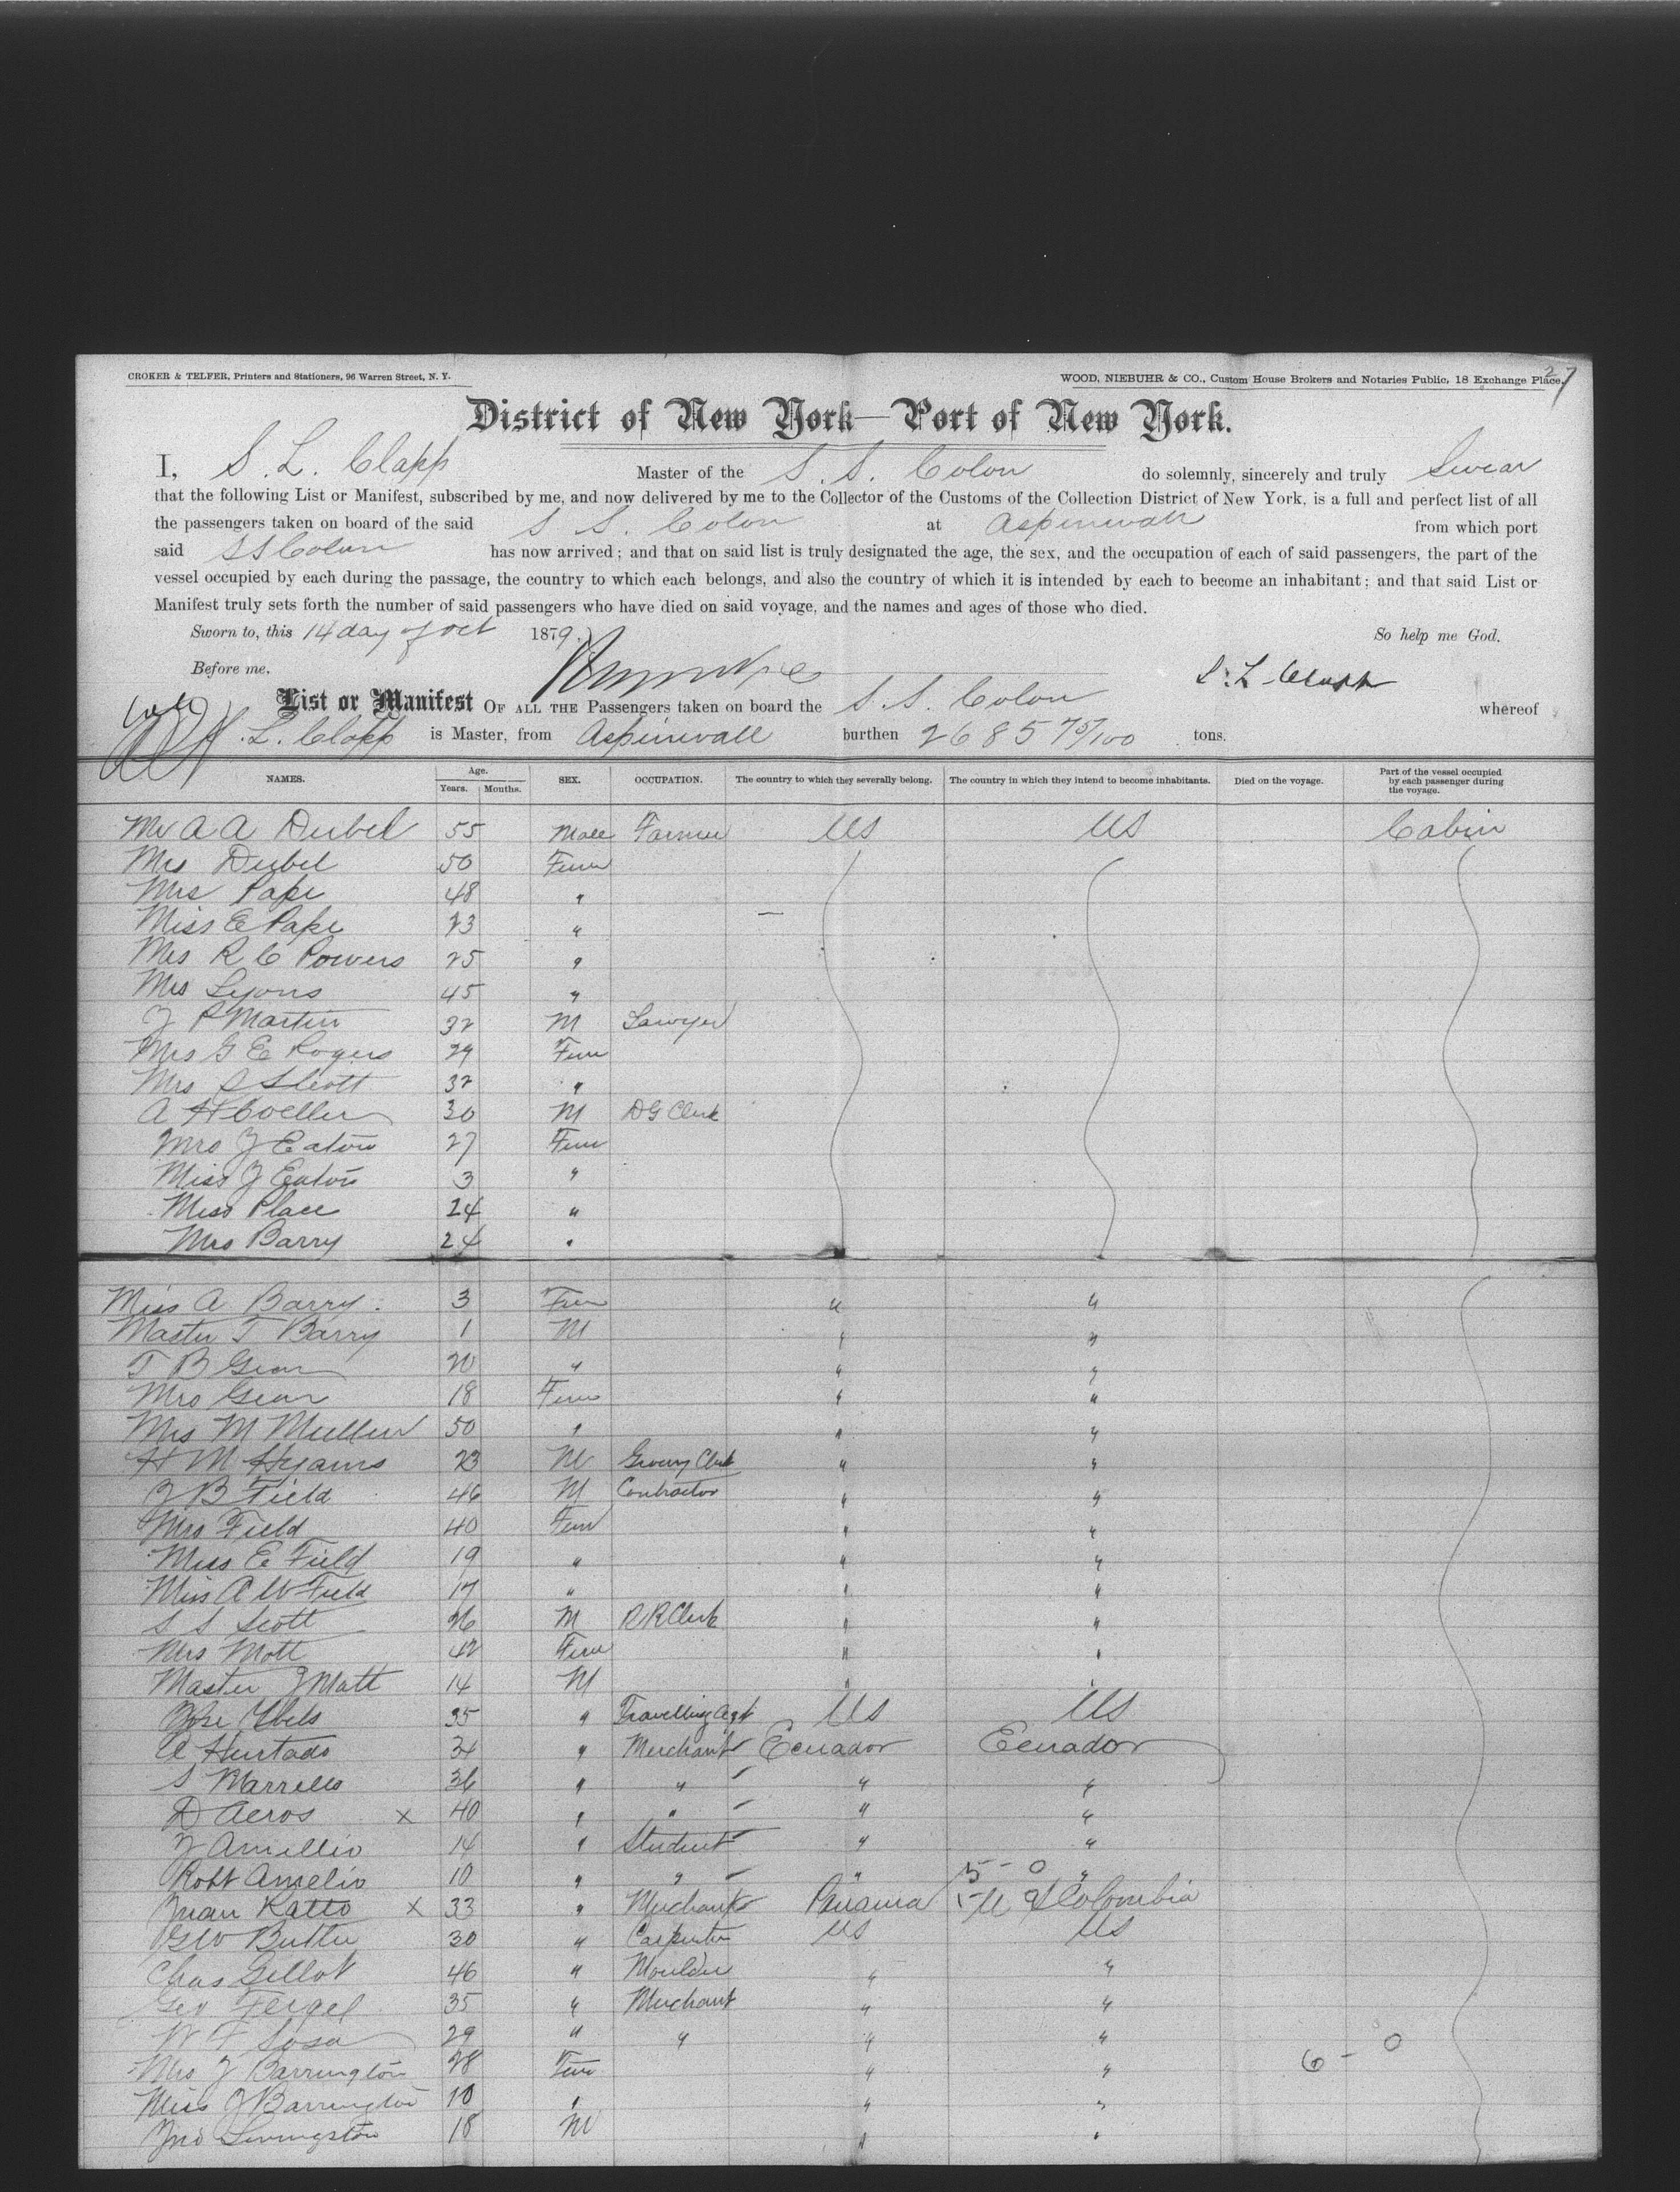 CROKER & TELFER, Printers and Stationers, 96 Warren Street, N. Y. WOOD, NIEBUHR & CO., Custom House Brokers and Notaries Public, 18 Exchange Place. 27
District of New York—Port of New York.
I, S. L. Clapp Master of the S. S. Colon do solemnly, sincerely and truly Swear
that the following List or Manifest, subscribed by me, and now delivered by me to the Collector of the Customs of the Collection District of New York, is a full and perfect list of all
the passengers taken on board of the said S S. Colon at Aspinwall from which port
said SS Colon has now arrived; and that on said list is truly designated the age, the sex, and the occupation of each of said passengers, the part of the
vessel occupied by each during the passage, the country to which each belongs, and also the country of which it is intended by each to become an inhabitant; and that said List or
Manifest truly sets forth the number of said passengers who have died on said voyage, and the names and ages of those who died.
Sworn to, this 14 day of Oct 1879. So help me God.
Before me. S. L Clapp
List or Manifest OF ALL THE Passengers taken on board the S. S. Colon whereof
L. Clapp is Master, from Aspinwall burthen 2685 75/100 tons.
NAMES. Age. Years. Months. SEX. OCCUPATION. The country to which they severally belong. The country in which they intend to become inhabitants. Died on the voyage. Part of the vessel occupied by each passenger during the voyage.
Mr A A Deibel 55 Male Farmer US US Cabin
Mrs Deibel 50 Fem
Mrs Pape 48 "
Miss E Pape 23 "
Mrs R C Powers 25 "
Mrs Lyons 45 "
J P Martin 32 M Lawyer
Mrs G E Rogers 29 Fem
Mrs S Scott 32 "
A H 30 M D G Clerk
Mrs J Eaton 27 Fem
Miss J Eaton 3 "
Miss Place 24 "
Mrs Barry 24 "
Miss A Barry. 3 Fem " "
Master T Barry 1 M " "
T B Gear 20 " " "
Mrs Gear 18 Fem " "
Mrs M Mullen 50 " " "
H M Hyams 23 M Grocery Clerk " "
J B Field 46 M Contractor " "
Mrs Field 40 Fem " "
Miss E Field 19 " " "
Miss A W Field 17 " " "
S S Scott 26 M R R Clerk " "
Mrs Mott 42 Fem " "
Master J Mott 14 M " "
35 " Travelling Agt US US
A Hurtado 34 " Merchant Ecuador Ecuador
S 36 " " " "
D Aeros x 40 " " " "
J Amellio 14 " Student " "
Robt Amelio 10 " " " 5 - 0 "
Juan Ratto x 33 " Merchant Panama U S Colombia
G W Butler 30 " Carpenter US US
Chas Gillot 46 " Moulder " "
Geo Feigel 35 " Merchant " "
W F Sosa 29 " " " "
Mrs J Barrington 28 Fem " " 6 - 0
Miss J Barrington 10 " " "
Jno Livingston 18 M " "